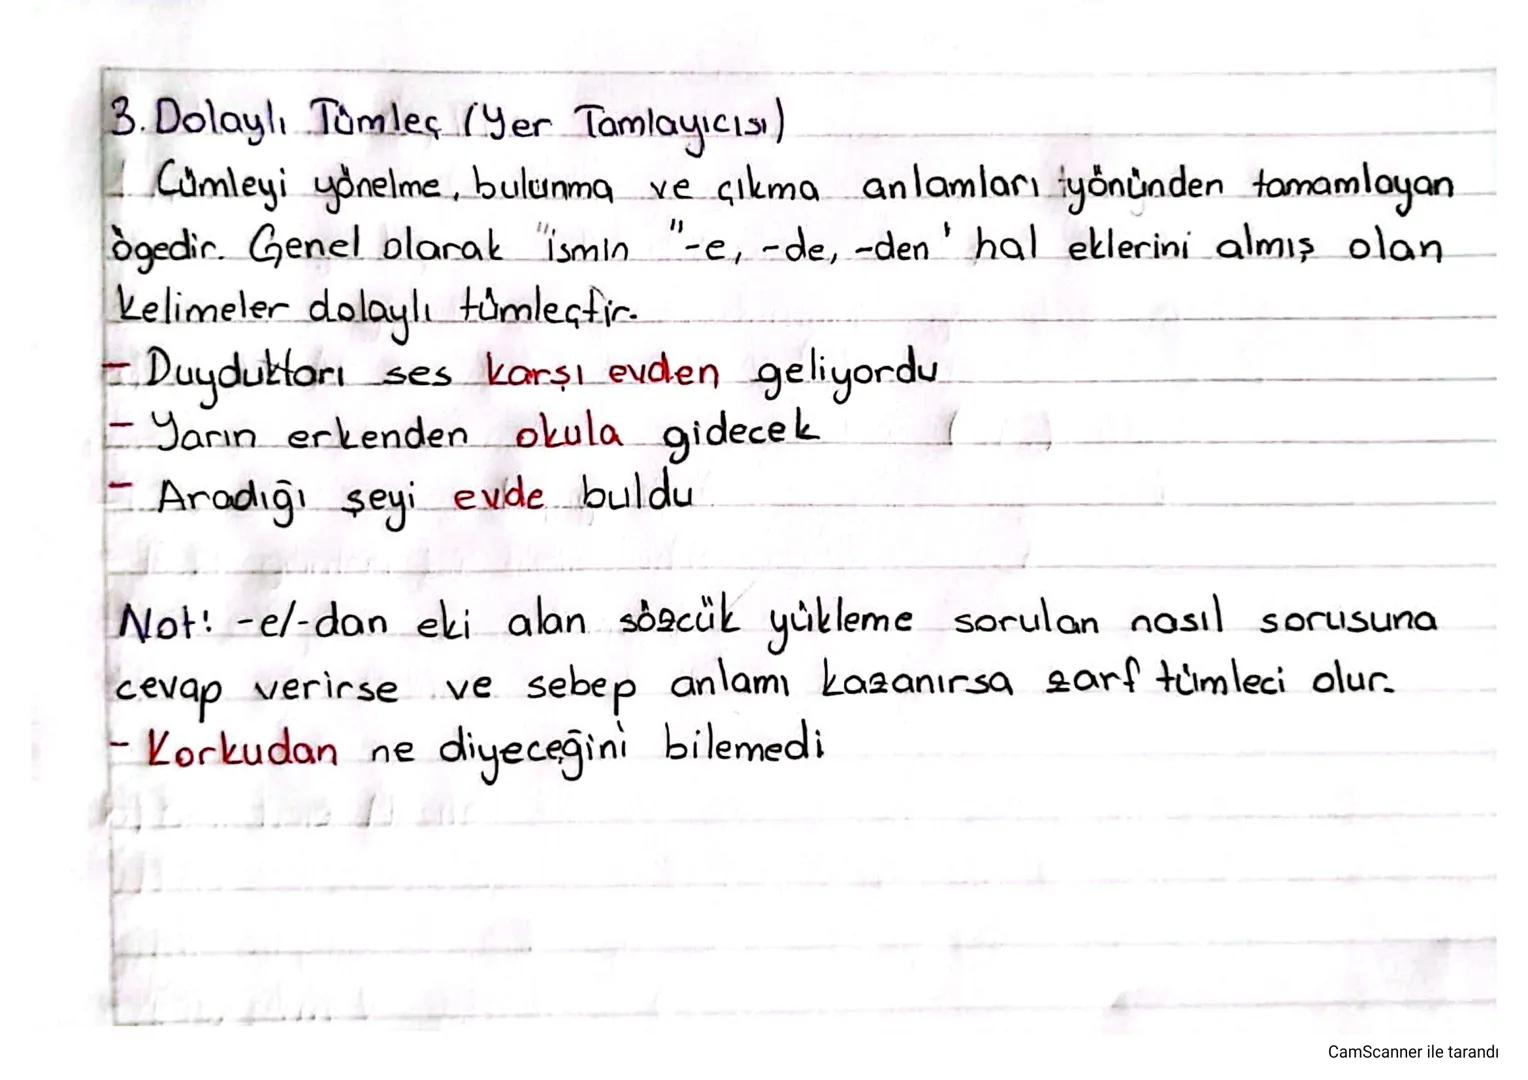 3. Dolaylı Tümleç (Yer Tamlayıcısı)
Cümleyi yönelme, bulunma ve çıkma anlamları yönünden tamamlayan
ögedir. Genel olarak "ismin "-e, -de, -den' hal eklerini almış olan
kelimeler dolaylı tümleçtir.
- Duydukları ses karşı evden geliyordu
- Yarın erkenden okula gidecek
- Aradığı şeyi evde buldu
Not! -e/-dan eki alan sözcük yükleme sorulan nasıl sorusuna
cevap verirse ve sebep anlamı kazanırsa zarf tümleci olur.
- Korkudan ne diyeceğini bilemedi
CamScanner ile tarandı